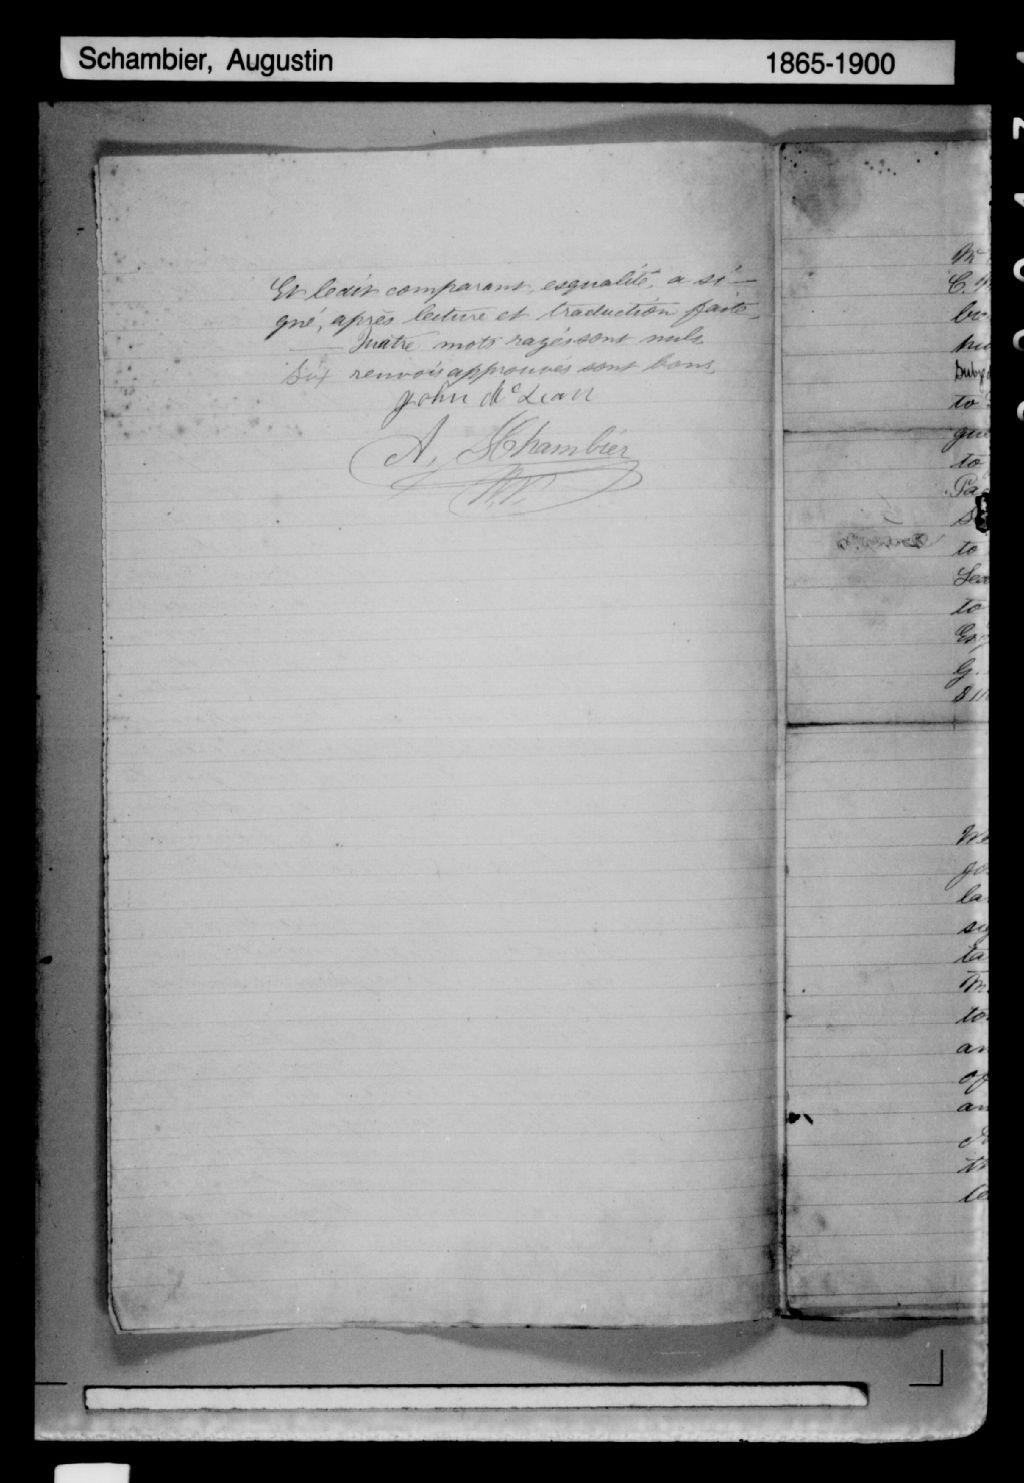 Schambier, Augustin 1865-1900
Et ledit comparant, esqualité, a si-
gné, après lecture et traduction faite.
Quatre mots rayés sont nuls
Six renvois approuvés sont bons
John McLean
A. Schambier
N.P.
to
que
to
to
to
G.
la
sig
ta
to
an
of
an